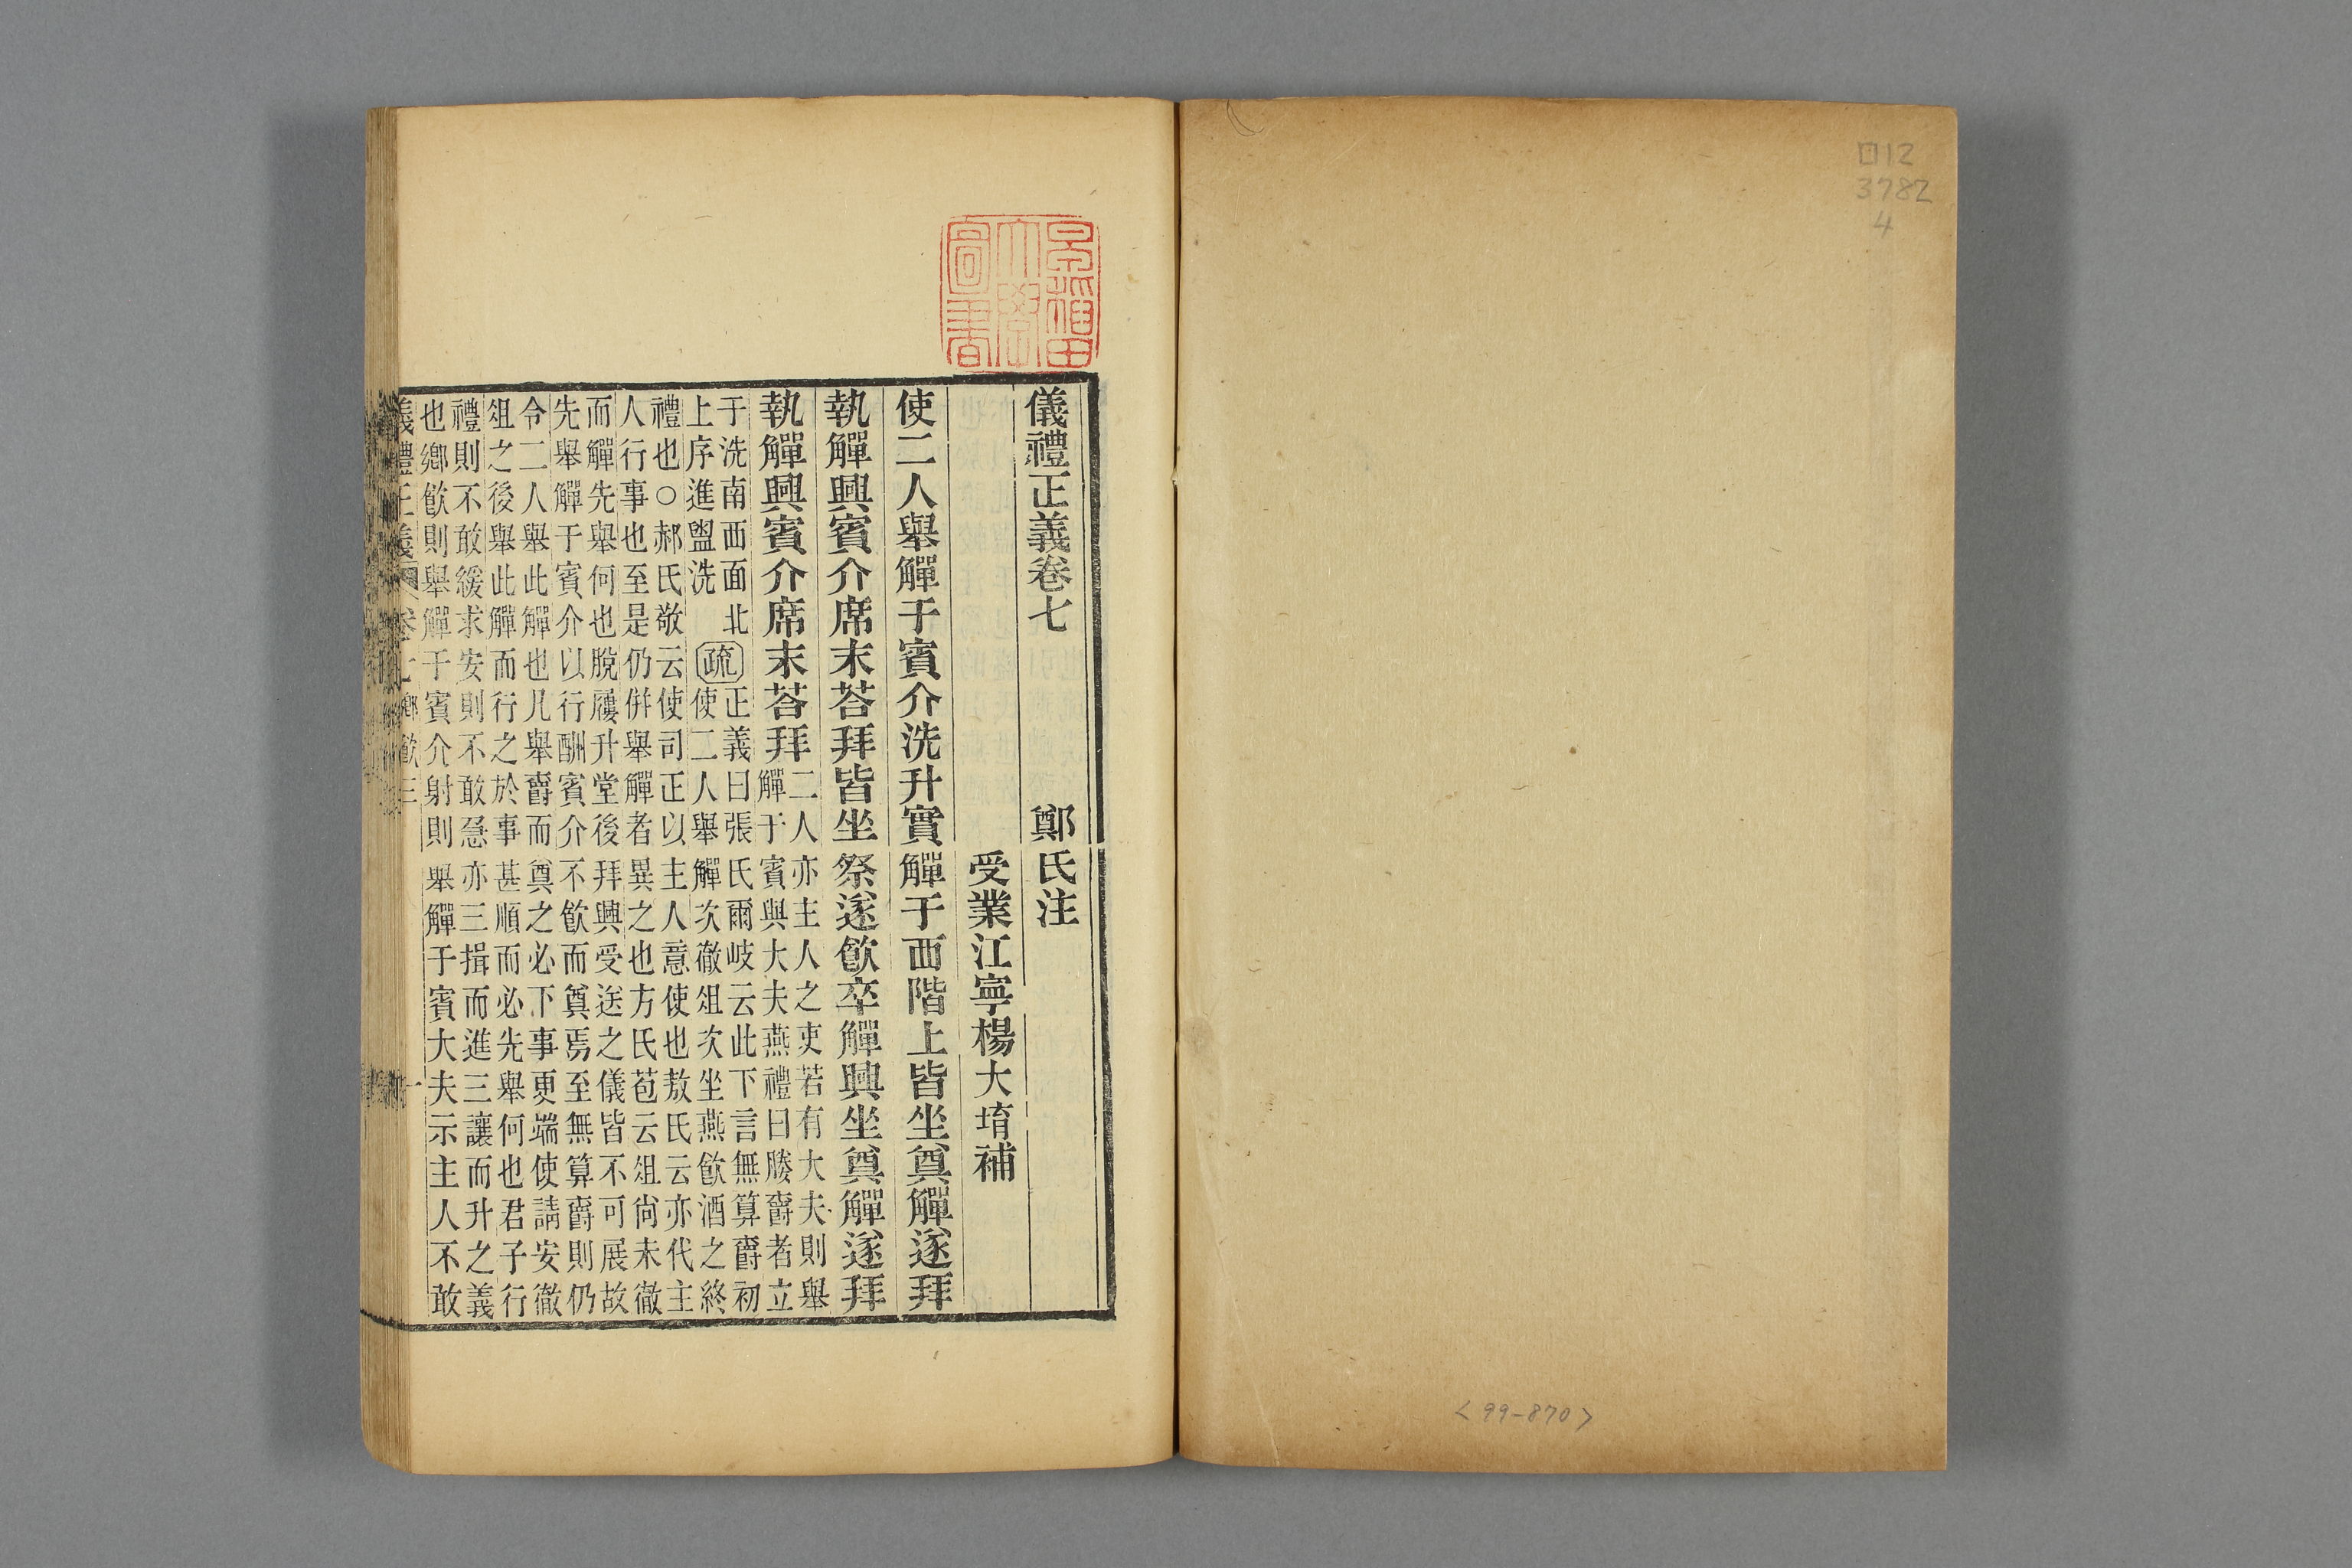 口12
3782
4
<99-870>
早稲田
大學
圖書
儀禮正義卷七　鄭氏注
受業江寧楊大堉補
使二人舉觶于賓介洗升實觶于西階上皆坐奠觶遂拜
執觶興賓介席末荅拜皆坐祭遂飮卒觶興坐奠觶遂拜
執觶興賓介席末荅拜
二人亦主人之吏若有大夫則舉
觶于賓與大夫燕禮曰媵爵者立
于洗南西面北
上序進盥洗
疏
正義曰張氏爾岐云此下言無算爵初
使二人舉觶次徹俎次坐燕飮酒之終
禮也○郝氏敬云使司正以主人意使也敖氏云亦代主
人行事也至是仍併舉觶者異之也方氏苞云俎尙未徹
而觶先舉何也脫屨升堂後拜興受送之儀皆不可展故
先舉觶于賓介以行酬賓介不飮而奠焉至無算爵則仍
令二人舉此觶也凡舉爵而奠之必下事更端使請安徹
俎之後舉此觶而行之於事甚順而必先舉何也君子行
禮則不敢緩求安則不敢急亦三揖而進三讓而升之義
也鄉飮則舉觶于賓介射則舉觶于賓大夫示主人不敢
儀禮正義 卷七 鄉飮三 一